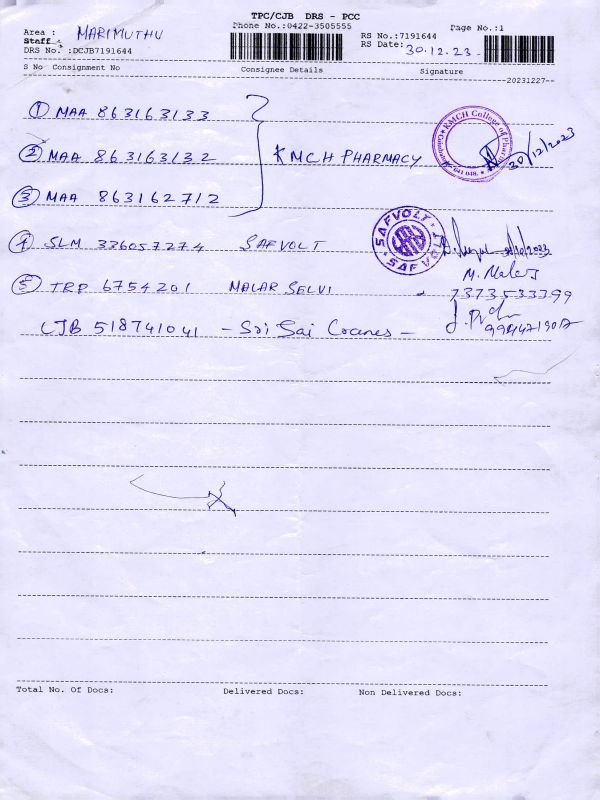 TPC/CJB DRS - PCC
Phone No.:0422-3505555
Page No.:1
Area : MARIMUTHU
RS No.:7191644
Staff :
RS Date: 30.12.23
DRS No. :DCJB7191644
S No Consignment No Consignee Details Signature
20231227
① MAA 863163133
② MAA 863163132 KMCH PHARMACY
30/12/2023
③ MAA 863162712
④ SLM 336057274 SAFVOLT
SAFVOLT
⑤ TRP 6754201 MALAR SELVI
M. Malar
7373533399
CJB 518741041 - Sri Sai Cranes -
Total No. Of Docs: Delivered Docs: Non Delivered Docs: